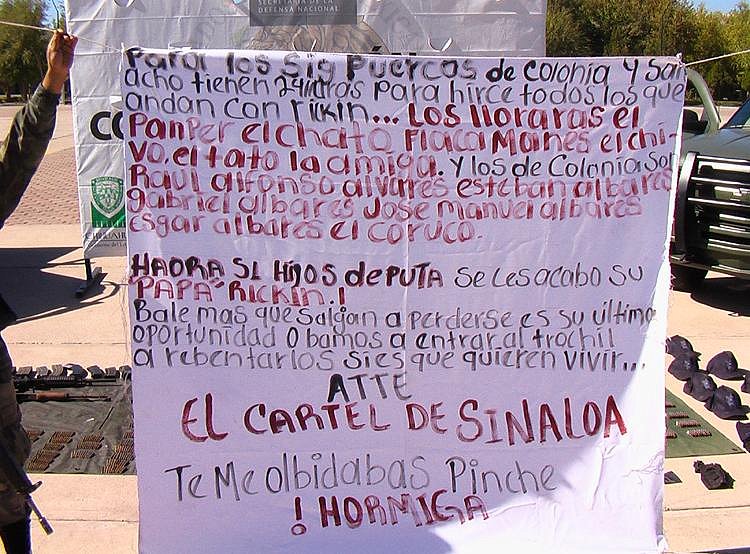 SECRETARÍA DE LA
DEFENSA NACIONAL
Para los sig puercos de colonia y san
acho tienen 24 hras para hirce todos los que
andan con rickin... Los lloraras el
panper el chato, Flaco Maines el chi-
vo, el tato la amiga. y los de Colonia son
Raul alfonso alvares esteban albares
gabriel albares Jose manuel albares
esgar albares el coruco.
HAORA SI HIJOS de PUTA se les acabo su
"PAPA" RICKIN.!
Bale mas que salgan a perderse es su última
oportunidad o bamos a entrar al trochil
a rebentarlos si es que quieren vivir...
ATTE
EL CARTEL DE SINALOA
Te Me olbidabas Pinche
! HORMIGA